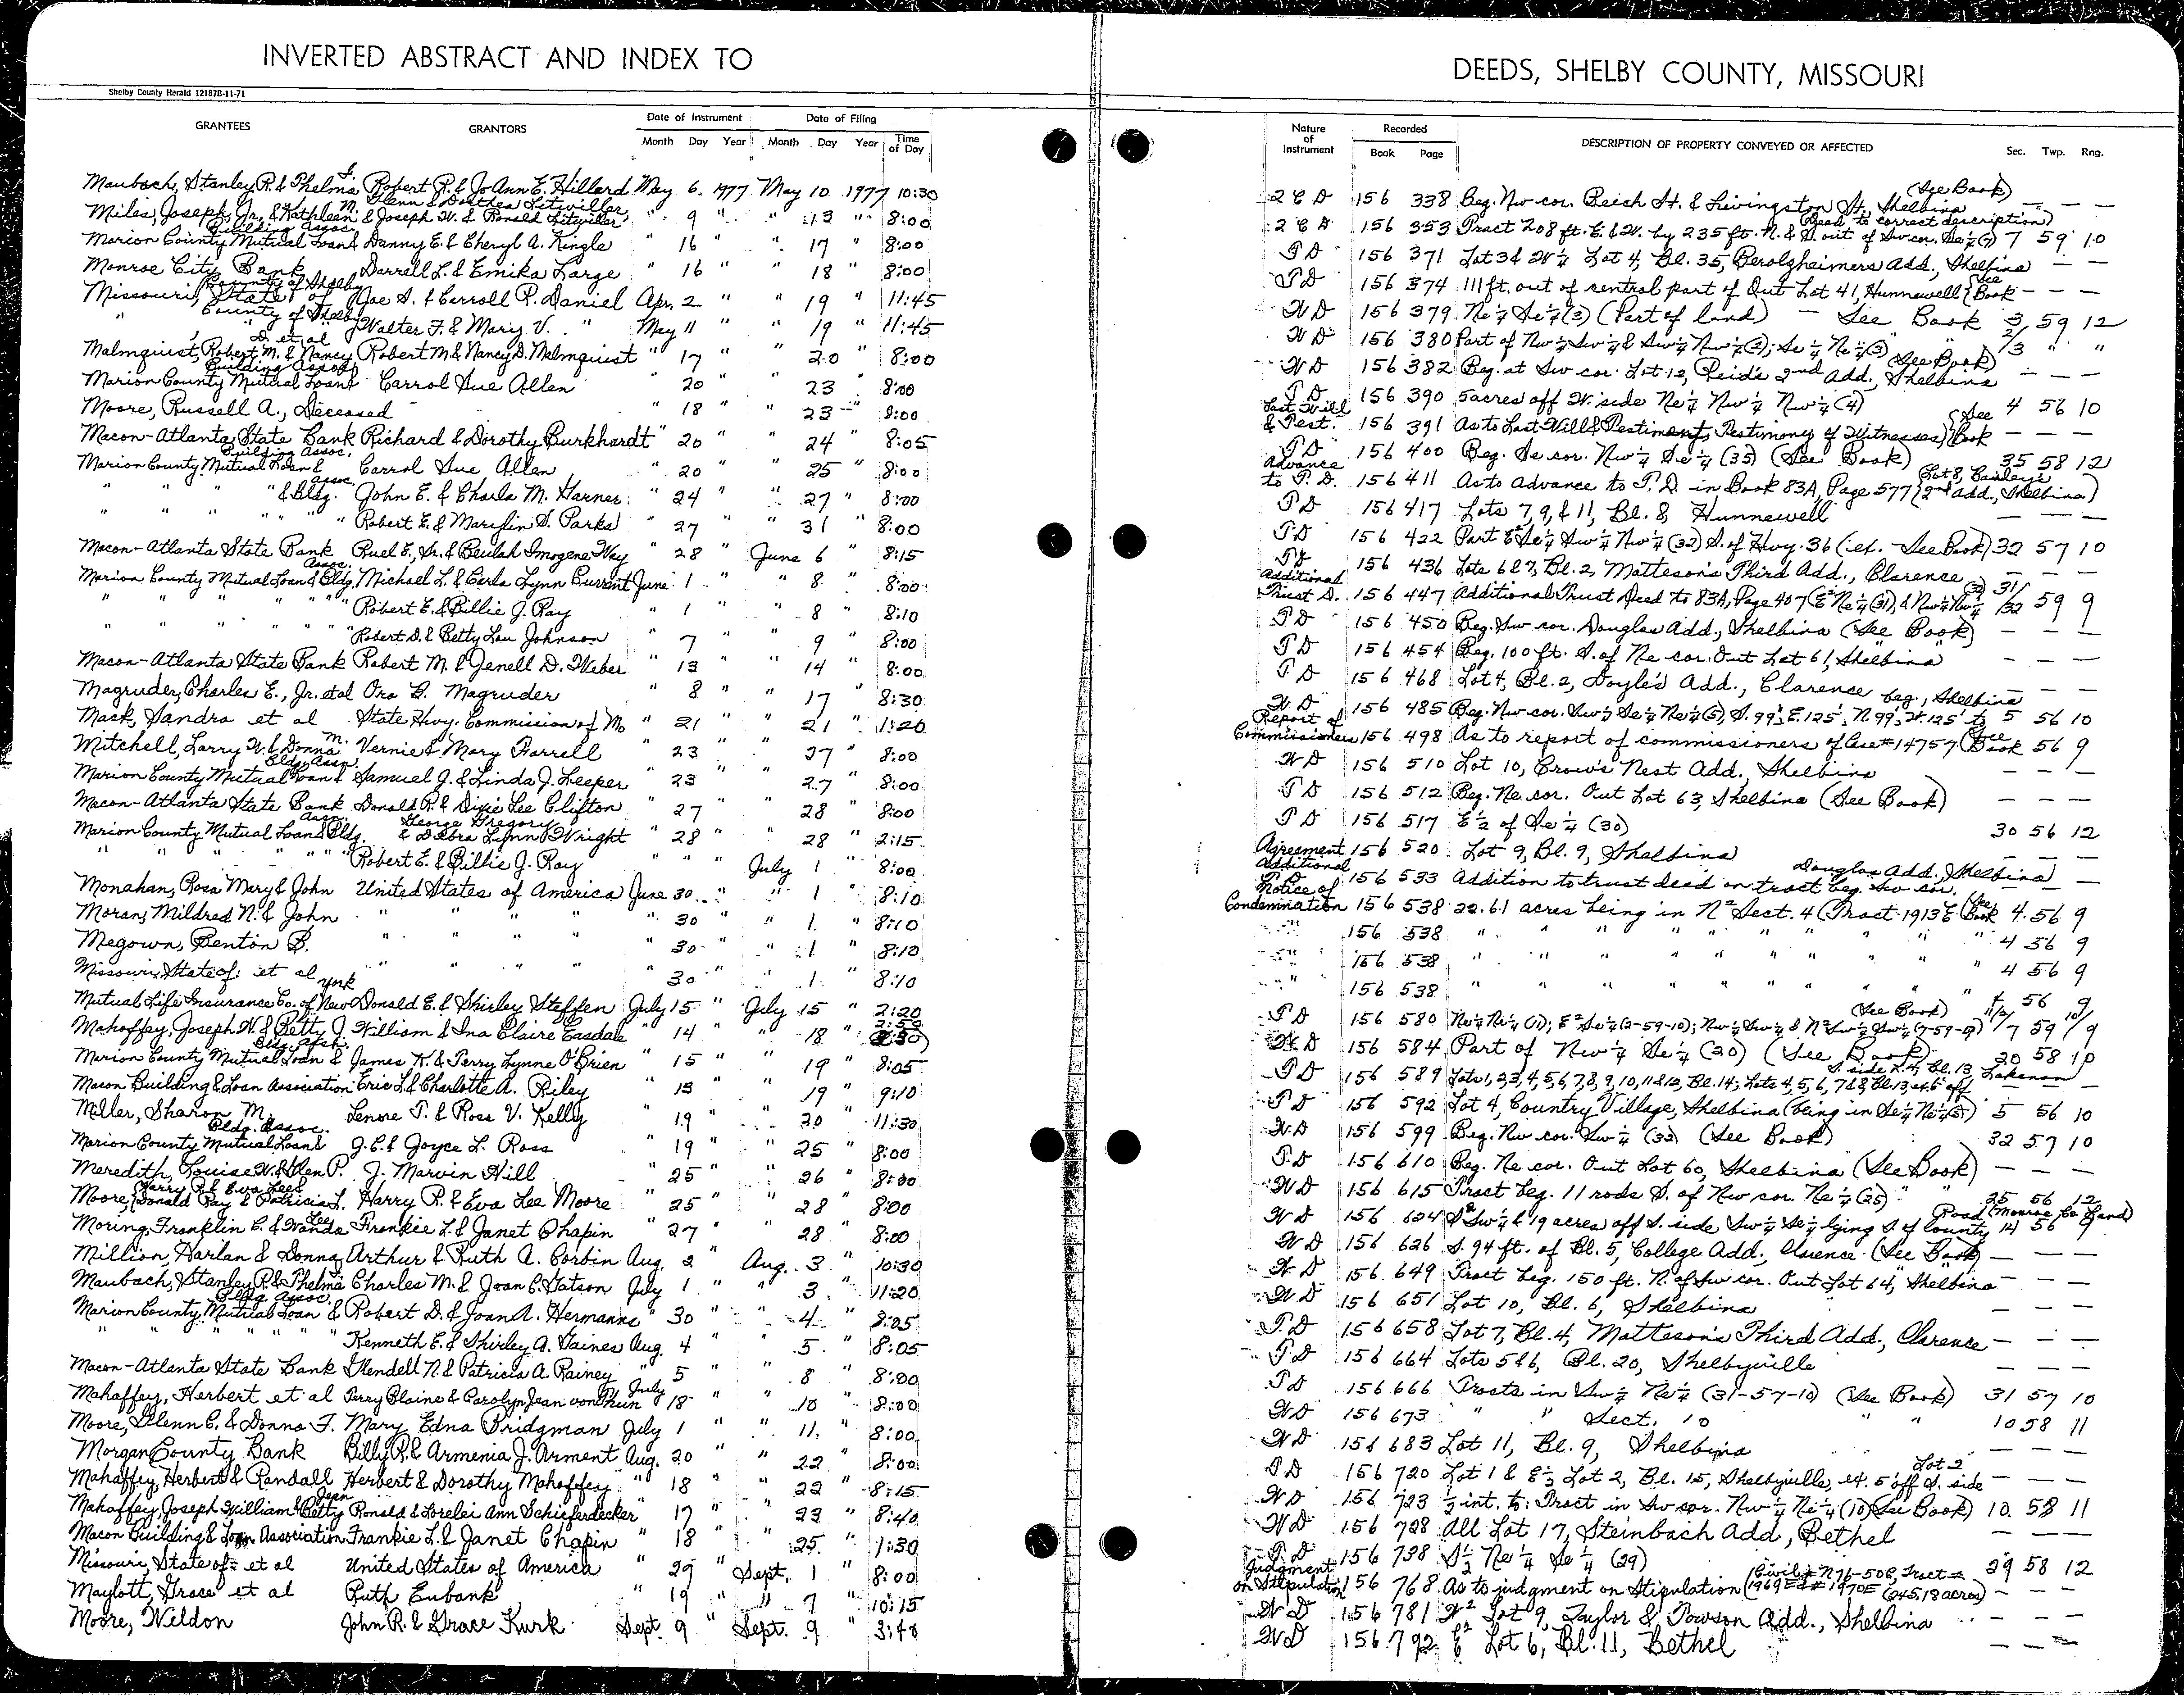 INVERTED ABSTRACT AND INDEX TO
DEEDS, SHELBY COUNTY, MISSOURI
Shelby County Herald 12187B-11-71
GRANTEES GRANTORS Date of Instrument Date of Filing
Month Day Year Month Day Year Time of Day
Nature of Instrument Recorded Book Page DESCRIPTION OF PROPERTY CONVEYED OR AFFECTED Sec. Twp. Rng.
Maubach, Stanley R. & Thelma J. Robert R. & JoAnn E. Hillard May 6 1977 May 10 1977 10:30
Miles, Joseph, Jr. & Kathleen M. Glenn & Dorthea Litwiller, & Joseph W. & Ronald Litwiller " 9 " " 13 " 8:00
Marion County Mutual Loan & Building Assoc. Danny E. & Cheryl A. Kingle " 16 " 17 " 8:00
Monroe City Bank Darrell L. & Emika Large " 16 " 18 " 8:00
Missouri, State of County of Shelby Joe S. & Carroll R. Daniel Apr. 2 " " 19 " 11:45
" County of Shelby Walter F. & Mary V. " May 11 " 19 " 11:45
Malmquist, Robert M. & Nancy D. et al Robert M & Nancy D. Malmquist " 17 " " 20 " 8:00
Marion County Mutual Loan & Building Assoc. Carrol Sue Allen " 20 " 23 8:00
Moore, Russell A., Deceased " 18 " " 23 " 8:00
Macon-Atlanta State Bank Richard & Dorothy Burkhardt " 20 " " 24 " 8:05
Marion County Mutual Loan & Building Assoc. Carrol Sue Allen " 20 " 25 " 8:00
" " " " & Bldg. Assoc. John E. & Charla M. Harner " 24 " " 27 " 8:00
" " " " " Robert E. & Marilin S. Parks " 27 " " 31 " 8:00
Macon-Atlanta State Bank Ruel E., Jr. & Beulah Imogene Way " 28 " June 6 " 8:15
Marion County Mutual Loan & Bldg. Assoc. Michael L. & Carla Lynn Current June 1 " " 8 " 8:00
" " " " " " Robert E. & Billie J. Ray " 1 " " 8 " 8:10
" " " " " " Robert D. & Betty Lou Johnson " 7 " " 9 " 8:00
Macon-Atlanta State Bank Robert M. & Jenell D. Weber " 13 " " 14 " 8:00
Magruder, Charles E., Jr. et al Ora B. Magruder " 8 " " 17 " 8:30
Mack, Sandra et al State Hwy. Commission of Mo " 21 " " 21 " 1:20
Mitchell, Larry W. & Donna M. Vernie & Mary Farrell " 23 " " 27 " 8:00
Marion County Mutual Loan & Bldg. Assn. Samuel J. & Linda J. Leeper " 23 " 27 " 8:00
Macon-Atlanta State Bank Donald R. & Dixie Lee Clifton " 27 " " 28 " 8:00
Marion County Mutual Loan & Bldg. Assn. George Gregory & Debra Lynn Wright " 28 " " 28 " 2:15
" " " " " " Robert E. & Billie J. Ray " " " July 1 " 8:00
Monahan, Rosa Mary & John United States of America June 30 " " 1 " 8:10
Moran, Mildred N. & John " " " " " 30 " 1 " 8:10
Megown, Benton B. " " " " " 30 " " 1 " 8:10
Missouri, State of: et al " " " " " 30 " " 1 " 8:10
Mutual Life Insurance Co. of New York Donald E. & Shirley Steffen July 15 " July 15 " 2:20
Mahaffey, Joseph W. & Betty J. William & Ina Claire Easdale " 14 " " 18 " 2:50
Marion County Mutual Loan & Bldg. Assn. James K. & Terry Lynne O'Brien " 15 " " 19 " 8:05
Macon Building & Loan Association Eric L. & Charlotte A. Riley " 13 " 19 " 9:10
Miller, Sharon M. Lenore T. & Ross V. Kelly " 19 " " 20 " 11:30
Marion County Mutual Loan & Bldg. Assoc. J.C. & Joyce L. Ross " 19 " 25 " 8:00
Meredith, Louise W. & Glen P. J. Marvin Hill " 25 " " 26 " 8:00
Moore, Harry R. & Eva Lee & Donald Ray & Patricia L. Harry R. & Eva Lee Moore " 25 " " 28 " 8:00
Moring, Franklin C. & Wanda Lee Frankie L. & Janet Chapin " 27 " " 28 " 8:00
Million, Harlan & Donna Arthur & Ruth A. Corbin Aug. 2 " Aug. 3 " 10:30
Maubach, Stanley R. & Thelma Charles M. & Joan C. Gatson July 1 " " 3 " 11:20
Marion County Mutual Loan & Bldg. Assoc. Robert D. & Joan A. Hermanns " 30 " " 4 " 8:05
" " " " " Kenneth E. & Shirley A. Gaines Aug. 4 " 5 " 8:05
Macon-Atlanta State Bank Wendell N. & Patricia A. Rainey " 5 " " 8 " 8:00
Mahaffey, Herbert et al Perry Blaine & Carolyn Jean von Thun July 18 " " 10 " 8:00
Moore, Glenn C. & Donna F. Mary Edna Bridgman July 1 " " 11 " 8:00
Morgan County Bank Billy R. & Armenia J. Arment Aug. 20 " " 22 " 8:00
Mahaffey, Herbert & Randall Herbert & Dorothy Mahaffey " 18 " " 22 " 8:15
Mahaffey, Joseph William & Betty Jean Ronald & Lorelei Ann Schieferdecker " 17 " " 23 " 8:40
Macon Building & Loan Association Frankie L. & Janet Chapin " 18 " 25 " 1:30
Missouri, State of: et al United States of America " 29 " Sept. 1 " 8:00
Maylott, Grace et al Ruth Eubank " 19 " 7 " 10:15
Moore, Weldon John R. & Grace Kurk Sept. 9 " Sept. 9 " 3:48
2 C D 156 338 Beg. Nw cor. Beich St. & Livingston St., Shelbina (See Book) — — —
2 C D 156 353 Tract 208 ft. E. & W. by 235 ft. N. & S. out of Sw cor. Se¼ (7) (Deed to correct description) 7 59 10
T D 156 371 Lot 3 & W½ Lot 4, Bl. 35, Berolzheimers Add., Shelbina — —
T D 156 374 111 ft. out of central part of Out Lot 41, Hunnewell (See Book — — —
W D 156 379 Ne¼ Se¼ (3) (Part of land) — See Book 3 59 12
W D 156 380 Part of Nw¼ Sw¼ & Sw¼ Nw¼ (2); Se¼ Ne¼ (3) (See Book) 2/3 " "
W D 156 382 Beg. at Sw cor. Lot 12, Reid's 2nd Add., Shelbina — — —
T D 156 390 5 acres off W. side Ne¼ Nw¼ Nw¼ (4) 4 56 10
Last Will & Test. 156 391 As to Last Will & Testiment, Testimony of Witnesses) (See Book — — —
T D 156 400 Beg. Se cor. Nw¼ Se¼ (35) (See Book) 35 58 12
Advance to T. D. 156 411 As to advance to T. D. in Book 83A, Page 577 (Lot 8, Bailey's 2nd Add., Shelbina)
T D 156 417 Lots 7, 9, & 11, Bl. 8, Hunnewell — — —
T D 156 422 Part E² Se¼ Sw¼ Nw¼ (32) S. of Hwy. 36 (ex. - See Book) 32 57 10
T D 156 436 Lots 6 & 7, Bl. 2, Matteson's Third Add., Clarence — — —
Additional Trust D. 156 447 Additional Trust Deed to 83A, Page 407 (E² Ne¼ (31), & Nw¼ Nw¼ (32) 31/32 59 9
T D 156 450 Beg. Sw cor. Douglas Add., Shelbina (See Book) — — —
T D 156 454 Beg. 100 ft. S. of Ne cor. Out Lot 61, Shelbina — — —
T D 156 468 Lot 4, Bl. 2, Doyle's Add., Clarence — — —
W D 156 485 Beg. Nw cor. Sw¼ Se¼ Ne¼ (5), S. 99', E. 125', N. 99', W. 125' to beg., Shelbina 5 56 10
Report of Commissioners 156 498 As to report of commissioners of Case #14757 (See Book 56 9
W D 156 510 Lot 10, Crow's Nest Add., Shelbina — — —
T D 156 512 Beg. Ne cor. Out Lot 63, Shelbina (See Book) — — —
T D 156 517 E½ of Se¼ (30) 30 56 12
Agreement 156 520 Lot 9, Bl. 9, Shelbina — — —
Additional T D 156 533 Addition to trust deed on tract beg. Sw cor. Douglas Add., Shelbina) —
Notice of Condemnation 156 538 22.61 acres being in N² Sect. 4 (Tract 1913E (See Book 4 56 9
" 156 538 " " " " " " " " 4 56 9
" 156 538 " " " " " " " " 4 56 9
" 156 538 " " " " " " " " 4 56 9
T D 156 580 Ne¼ Ne¼ (11); E² Se¼ (2-59-10); Nw¼ Sw¼ & N² Sw¼ Sw¼ (7-59-9) (See Book) 11/2/7 59 10/9
W D 156 584 Part of Nw¼ Se¼ (20) (See Book) 20 58 10
T D 156 589 Lots 1, 2, 3, 4, 5, 6, 7, 8, 9, 10, 11 & 12, Bl. 14; Lots 4, 5, 6, 7 & 8, Bl. 13 ex. 6' off S. side L. 4, Bl. 13, Lakenan
T D 156 592 Lot 4, Country Village, Shelbina (being in Se¼ Ne¼ (5) 5 56 10
W D 156 599 Beg. Nw cor. Sw¼ (32) (See Book) 32 57 10
T D 156 610 Beg. Ne cor. Out Lot 60, Shelbina (See Book) — — —
W D 156 615 Tract beg. 11 rods S. of Nw cor. Ne¼ (25) " " 25 56 12
W D 156 624 S² Sw¼ & 19 acres off S. side Sw¼ Se¼ lying S of County Road (Monroe Co. Land) 14 56 9
W D 156 626 S. 94 ft. of Bl. 5, College Add., Clarence (See Book) — — —
W D 156 649 Tract beg. 150 ft. N. of Sw cor. Out Lot 64, Shelbina — — —
W D 156 651 Lot 10, Bl. 6, Shelbina — — —
T D 156 658 Lot 7, Bl. 4, Matteson's Third Add., Clarence — — —
T D 156 664 Lots 5 & 6, Bl. 20, Shelbyville — — —
T D 156 666 Tracts in Sw¼ Ne¼ (31-57-10) (See Book) 31 57 10
W D 156 673 " " Sect. 10 " " 10 58 11
W D 156 683 Lot 11, Bl. 9, Shelbina — — —
T D 156 720 Lot 1 & E½ Lot 2, Bl. 15, Shelbyville, ex. 5' off S. side Lot 2 — — —
W D 156 723 ½ int. to: Tract in Sw cor. Nw¼ Ne¼ (10) (See Book) 10 58 11
W D 156 728 All Lot 17, Steinbach Add, Bethel — — —
T D 156 738 S½ Ne¼ Se¼ (29) 29 58 12
Judgment on Stipulation 156 768 As to judgment on Stipulation (Civil # N76-50C, Tract # 1969E & # 1970E (245.18 acres) — — —
W D 156 781 W² Lot 9, Taylor & Towson Add., Shelbina — — —
W D 156 792 E² Lot 6, Bl. 11, Bethel — — —